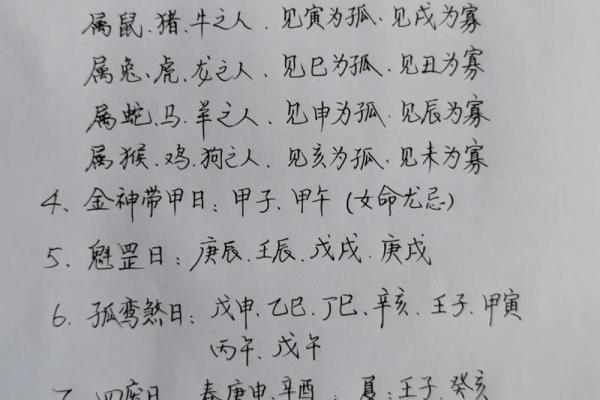 属鼠、猪、牛之人、见寅为孤、见戌为寡
属兔、虎、龙之人、见巳为孤、见丑为寡
属蛇、马、羊之人、见申为孤、见辰为寡
属猴、鸡、狗之人、见亥为孤、见未为寡
4、金神带甲日：甲子、甲午（女命尤忌）
5、魁罡日：庚辰、壬辰、戊戌、庚戌
6、孤鸾煞日：戊申、乙巳、丁巳、辛亥、壬子、甲寅
丙午、戊午
7、四废日 春庚申、辛酉；夏：壬子、癸亥